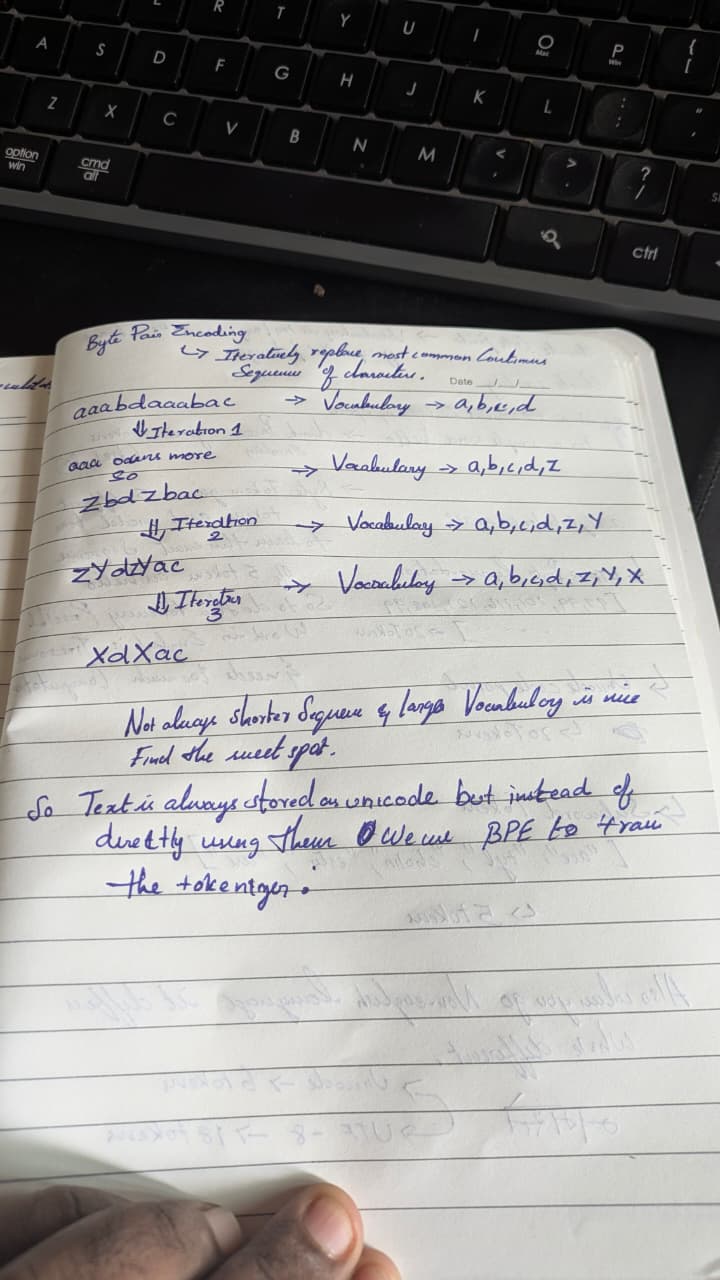 R T Y U I O P {
Mac Win [
A S D F G H J K L : "
; '
Z X C V B N M < > ?
, . /
option cmd
win alt
ctrl
Byte Pair Encoding
↳ Iteratively replace most common Continus
Sequence of characters.
Date __/__/__
aaabdaaabac → Vocabulary → a,b,c,d
⇓ Iteration 1
aaa occurs more → Vocabulary → a,b,c,d,Z
so
Zbdzbac
⇓ Iteration → Vocabulary → a,b,c,d,z,Y
2
zYdzYac → Vocabulary → a,b,c,d,z,Y,X
⇓ Iteration
3
XdXac
Not always shorter Sequence & large Vocabulary is nice
Find the sweet spot.
So Text is always stored as unicode but instead of
directly using them We use BPE to train
the tokenizer.